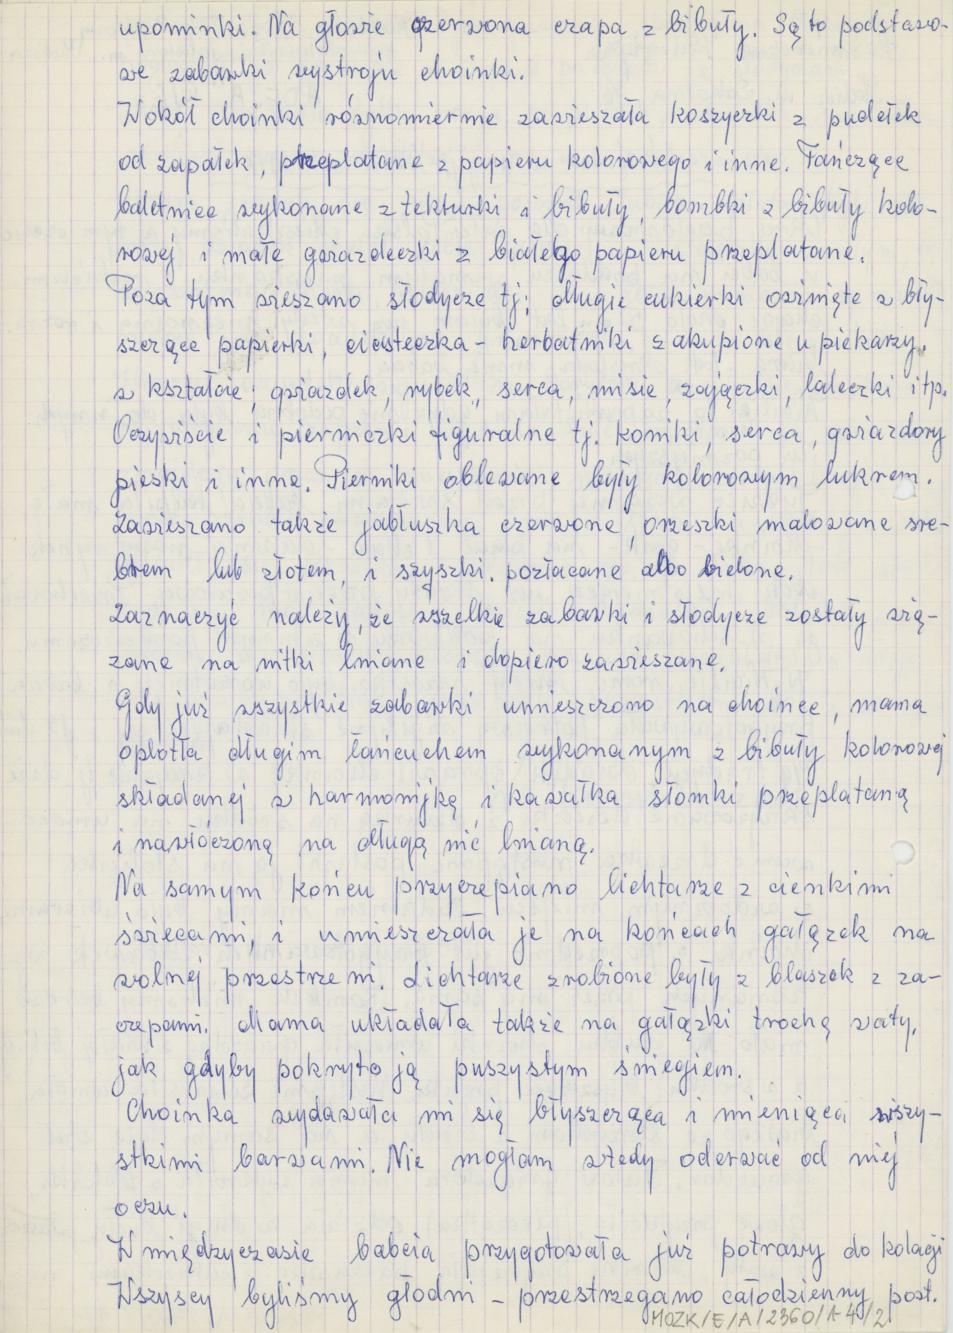 upominki. Na głowie czerwona czapa z bibuły. Są to podstawo-
we zabawki wystroju choinki.
Wokół choinki równomiernie zawieszała koszyczki z pudełek
od zapałek, przeplatane z papieru kolorowego i inne. Tańczące
baletnice wykonane z tekturki i bibuły, bombki z bibuły kolo-
rowej i małe gwiazdeczki z białego papieru przeplatane.
Poza tym wieszano słodycze tj; długie cukierki owinięte w bły-
szczące papierki, ciasteczka - herbatniki zakupione u piekarzy,
w kształcie; gwiazdek, rybek, serca, misie, zajączki, laleczki itp.
Oczywiście i pierniczki figuralne tj. koniki, serca, gwiazdory
pieski i inne. Pierniki oblewane były kolorowym lukrem.
Zawieszano także jabłuszka czerwone, orzeszki malowane sre-
brem lub złotem, i szyszki. pozłacane albo bielone.
Zaznaczyć należy, że wszelkie zabawki i słodycze zostały wią-
zane na nitki lniane i dopiero zawieszane.
Gdy już wszystkie zabawki umieszczono na choince, mama
oplotła długim łańcuchem wykonanym z bibuły kolorowej
składanej w harmonijkę i kawałka słomki przeplataną
i nawłóczoną na długą nić lnianą.
Na samym końcu przyczepiano lichtarze z cienkimi
świecami, i umieszczała je na końcach gałązek na
wolnej przestrzeni. Lichtarze zrobione były z blaszek z za-
czepami. Mama układała także na gałązki trochę waty,
jak gdyby pokryto ją puszystym śniegiem.
Choinka wydawała mi się błyszcząca i mieniąca wszy-
stkimi barwami. Nie mogłam wtedy oderwać od niej
oczu.
W międzyczasie babcia przygotowała już potrawy do kolacji
Wszyscy byliśmy głodni - przestrzegano całodzienny post.
MOZK/E/A/2360/1-4/2